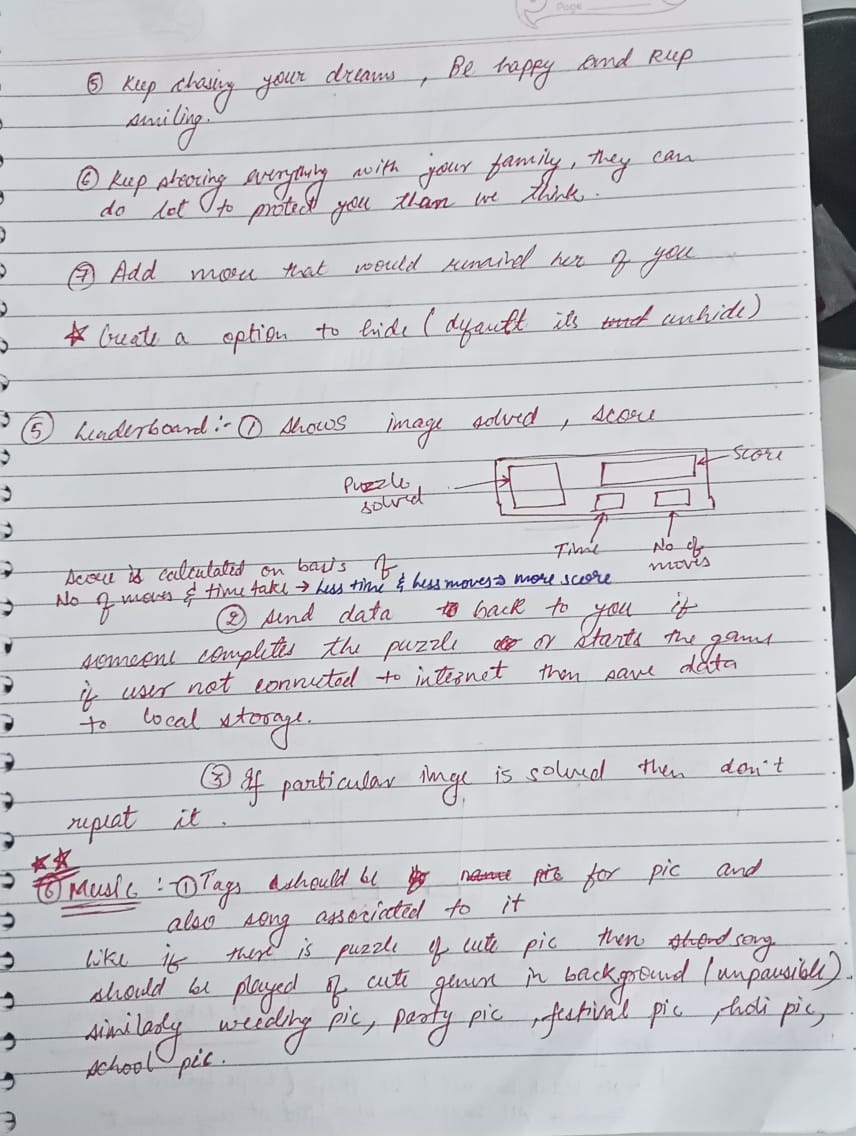 Page
⑤ Keep chasing your dreams, Be happy and keep
smiling.
⑥ Keep sharing everything with your family, they can
do lot to protect you than we think.
⑦ Add more that would remind her of you
* Create a option to hide (default its unhide)
⑤ Leaderboard :- ① shows image solved, score
Puzzle
solved
Score
Time
No of
moves
Score is calculated on basis of
No of moves & time take → Less time & Less moves → more score
② send data back to you if
someone completes the puzzle or starts the game
if user not connected to internet then save data
to local storage.
③ If particular imge is solved then don't
repeat it.
**
⑥ Music : ① Tags should be for pic and
also song associated to it
like if there is puzzle of cute pic then song
should be played of cute genre in background (unpausible).
similarly weeding pic, party pic, festival pic, holi pic,
school pic.